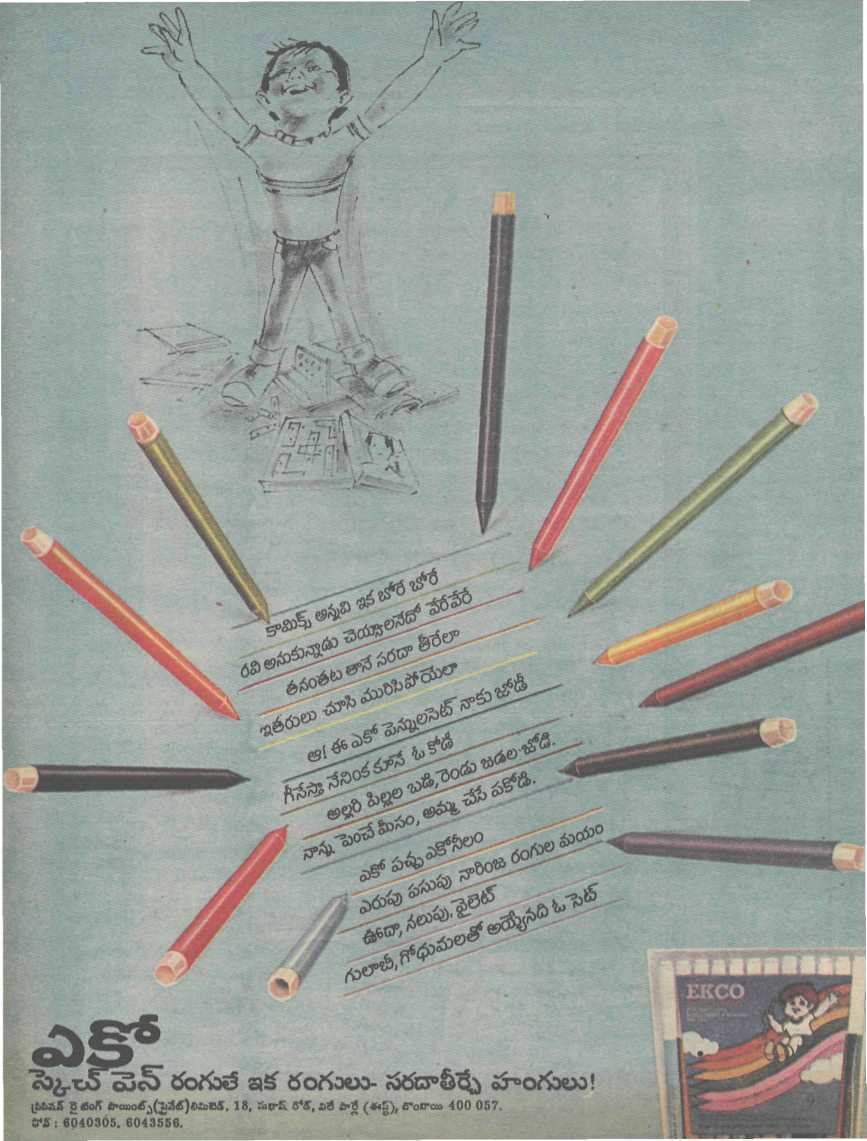 కామిక్స్ అన్నవి ఇక బోరే బోరే
రవి అనుకున్నాడు చెయ్యాలనేదో వేరేవేరే
తనంతట తానే సరదా తీరేలా
ఇతరులు చూసి మురిసిపోయేలా
ఆ! ఈ ఎకో పెన్నులసెట్ నాకు జోడీ
గీసేస్తా నేనింక కూసే ఓ కోడి
అల్లరి పిల్లల బడి, రెండు జడల జోడి.
నాన్న పెంచే మీసం, అమ్మ చేసే పకోడి.
ఎకో పచ్చ ఎకోనీలం
ఎరుపు పసుపు నారింజ రంగుల మయం
ఊదా, నలుపు, వైలెట్
గులాబీ, గోధుమలతో అయ్యేనది ఓ సెట్
EKCO
ఎకో
స్కెచ్ పెన్ రంగులే ఇక రంగులు- సరదాతీర్చే హంగులు!
ప్రిసిషన్ రైటింగ్ పాయింట్స్(ప్రైవేట్)లిమిటెడ్, 18, సుభాష్ రోడ్, విలే పార్లే (ఈస్ట్), బొంబాయి 400 057.
ఫోన్ : 6040305, 6043556.